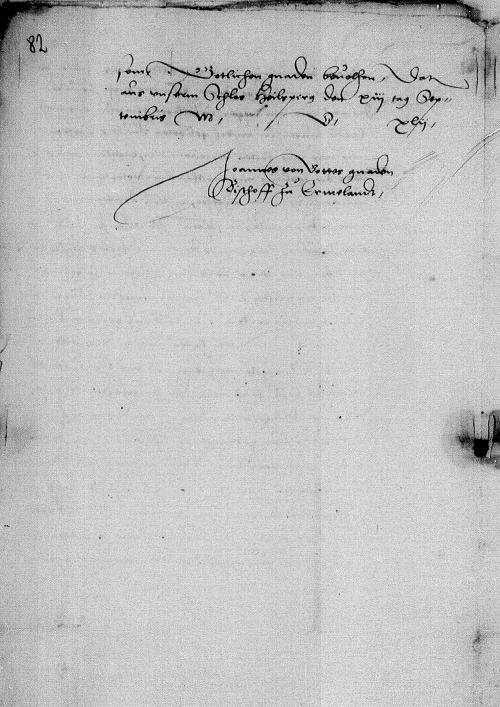 82
seine Gotlichen gnaden beuolhen. Dat
aus unserm Schlos Heilsperg den xiij tag Sep-
tembris M. D. xlij.
Joannes von Gottes gnaden
Bischoff zu Ermelandt.